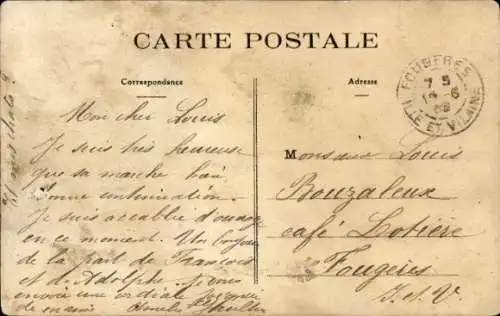 CARTE POSTALE
Correspondance
Adresse
FOUGERES
7 5
6
ILLE ET VILAINE
Mon cher Louis
Je suis très heureuse
que sa marche bien
Bonne continuation.
Je suis accablée d'ouvrage
en ce moment. Un bonjour
de la part de François
et d'Adolphe. Je vous
envoie une cordiale poignée
de mains
Monsieur Louis
Bouzaleux
café Lotière
Fougères
I. et V.